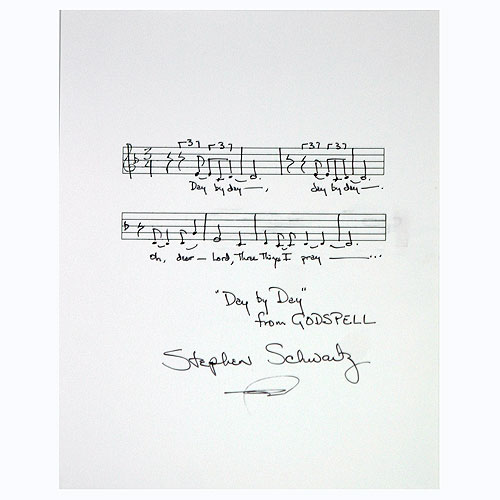 Day by day —, day by day —.
Oh, dear — Lord, Three Things I pray — ...
"Day by Day"
from GODSPELL
Stephen Schwartz